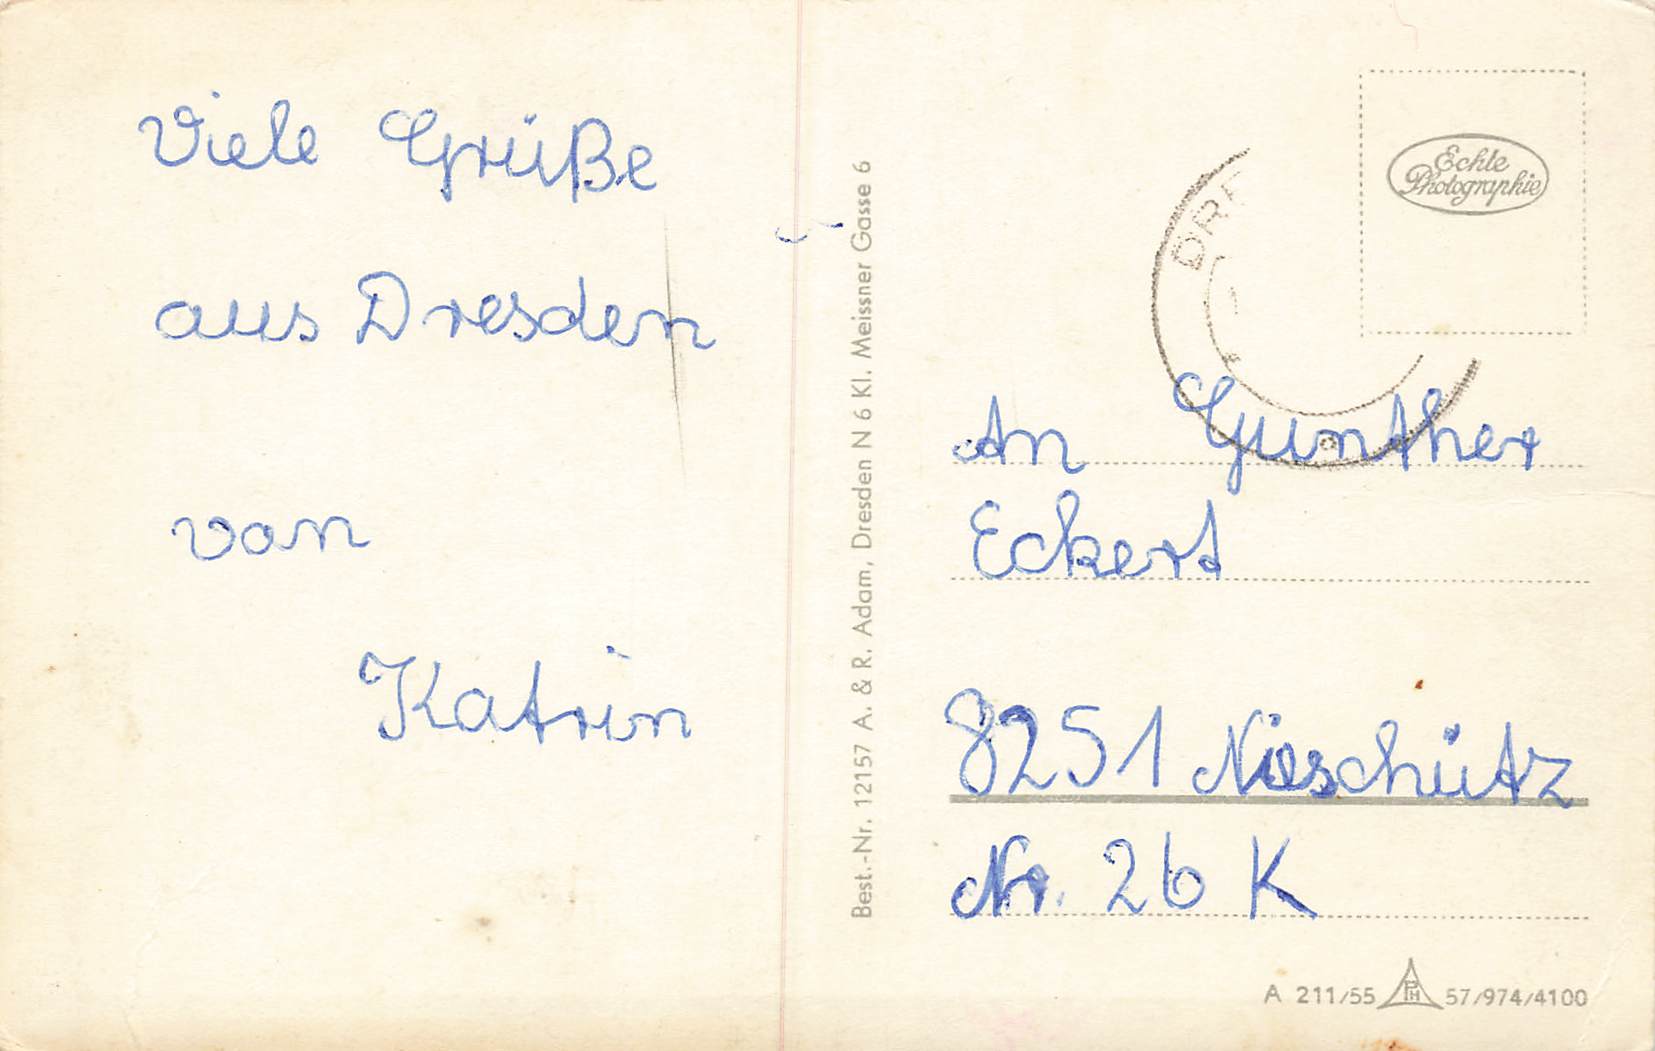 Viele Grüße
aus Dresden
von
Katrin
Best.-Nr. 12157 A. & R. Adam, Dresden N 6 Kl. Meissner Gasse 6
Echte
Photographie
DRE
An Gunther
Eckert
8251 Nieschütz
Nr. 26 K
A 211/55 PH 57/974/4100